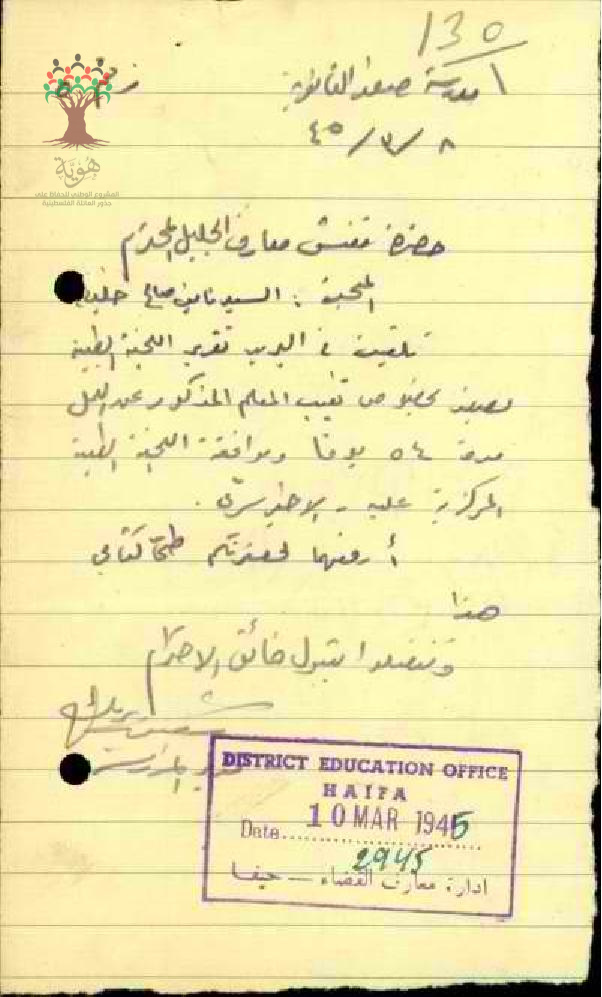 ١٣٥
مدرسة صفد الثانوية
٨/٣/٤٥
هُويَّة
المشروع الوطني للحفاظ على
جذور العائلة الفلسطينية
حضرة مفتش معارف الجليل المحترم
السيد نايف صالح
تلقيت في البريد تقرير اللجنة الطبية
بصفد بخصوص تغيب المعلم المذكور عن العمل
مدة ٥٤ يوما وموافقة اللجنة الطبية
المركزية عليه
أرفعهما لحضرتكم طي كتابي
هذا
وتفضلوا بقبول فائق الاحترام
مدير المدرسة
DISTRICT EDUCATION OFFICE
HAIFA
Date 10 MAR 1945
2945
ادارة معارف القضاء — حيفا